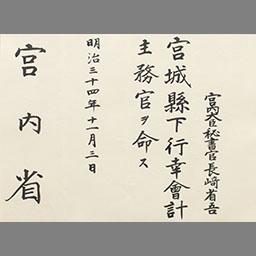 宮内大臣秘書官長崎省吾
宮城縣下行幸會計
主務官ヲ命ス
明治三十四年十一月三日
宮内省